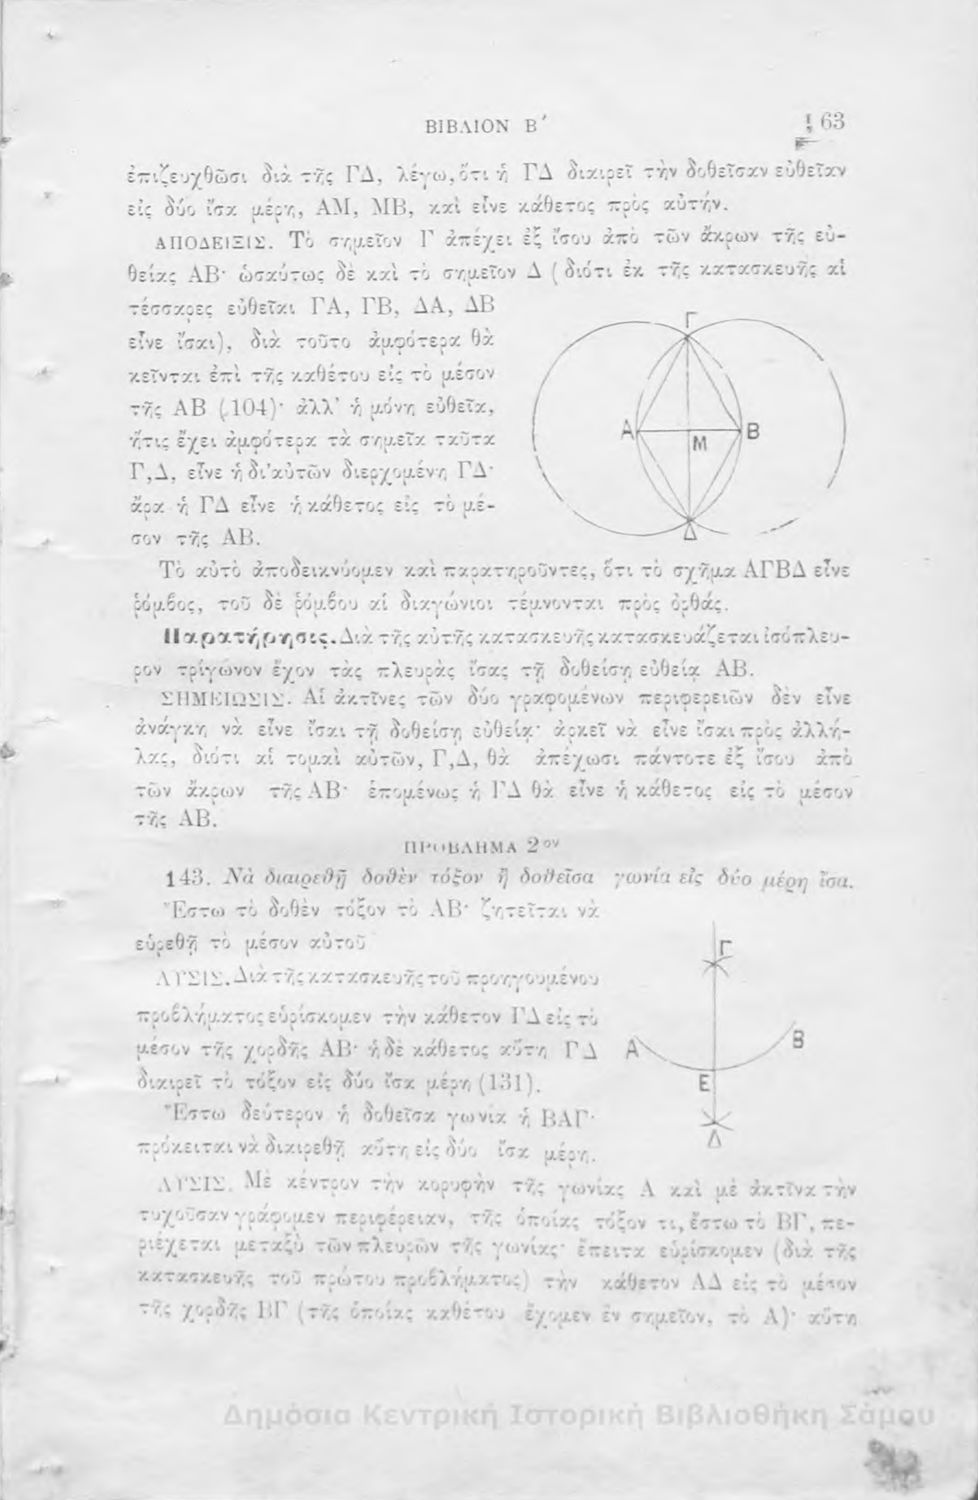 ΒΙΒΛΙΟΝ Β΄ 163
ἐπιζευχθῶσι διὰ τῆς ΓΔ, λέγω, ὅτι ἡ ΓΔ διαιρεῖ τὴν δοθεῖσαν εὐθεῖαν
εἰς δύο ἴσα μέρη, ΑΜ, ΜΒ, καὶ εἶνε κάθετος πρὸς αὐτήν.
ΑΠΟΔΕΙΞΙΣ. Τὸ σημεῖον Γ ἀπέχει ἐξ ἴσου ἀπὸ τῶν ἄκρων τῆς εὐ-
θείας ΑΒ· ὡσαύτως δὲ καὶ τὸ σημεῖον Δ (διότι ἐκ τῆς κατασκευῆς αἱ
τέσσαρες εὐθεῖαι ΓΑ, ΓΒ, ΔΑ, ΔΒ
εἶνε ἴσαι), διὰ τοῦτο ἀμφότερα θὰ
κεῖνται ἐπὶ τῆς καθέτου εἰς τὸ μέσον
τῆς ΑΒ (104)· ἀλλ' ἡ μόνη εὐθεῖα,
ἥτις ἔχει ἀμφότερα τὰ σημεῖα ταῦτα
Γ,Δ, εἶνε ἡ δι'αὐτῶν διερχομένη ΓΔ·
ἄρα ἡ ΓΔ εἶνε ἡ κάθετος εἰς τὸ μέ-
σον τῆς ΑΒ.
Γ
Α Μ Β
Δ
Τὸ αὐτὸ ἀποδεικνύομεν καὶ παρατηροῦντες, ὅτι τὸ σχῆμα ΑΓΒΔ εἶνε
ῥόμβος, τοῦ δὲ ῥόμβου αἱ διαγώνιοι τέμνονται πρὸς ὀρθάς.
Παρατήρησις. Διὰ τῆς αὐτῆς κατασκευῆς κατασκευάζεται ἰσόπλευ-
ρον τρίγωνον ἔχον τὰς πλευρὰς ἴσας τῇ δοθείσῃ εὐθείᾳ ΑΒ.
ΣΗΜΕΙΩΣΙΣ. Αἱ ἀκτῖνες τῶν δύο γραφομένων περιφερειῶν δὲν εἶνε
ἀνάγκη νὰ εἶνε ἴσαι τῇ δοθείσῃ εὐθείᾳ· ἀρκεῖ νὰ εἶνε ἴσαι πρὸς ἀλλή-
λας, διότι αἱ τομαὶ αὐτῶν, Γ,Δ, θὰ ἀπέχωσι πάντοτε ἐξ ἴσου ἀπὸ
τῶν ἄκρων τῆς ΑΒ· ἑπομένως ἡ ΓΔ θὰ εἶνε ἡ κάθετος εἰς τὸ μέσον
τῆς ΑΒ.
ΠΡΟΒΛΗΜΑ 2ον
143. Νὰ διαιρεθῇ δοθὲν τόξον ἢ δοθεῖσα γωνία εἰς δύο μέρη ἴσα.
Ἔστω τὸ δοθὲν τόξον τὸ ΑΒ· ζητεῖται νὰ
εὑρεθῇ τὸ μέσον αὐτοῦ
ΛΥΣΙΣ. Διὰ τῆς κατασκευῆς τοῦ προηγουμένου
προβλήματος εὑρίσκομεν τὴν κάθετον ΓΔ εἰς τὸ
μέσον τῆς χορδῆς ΑΒ· ἡ δὲ κάθετος αὕτη ΓΔ
διαιρεῖ τὸ τόξον εἰς δύο ἴσα μέρη (131).
Ἔστω δεύτερον ἡ δοθεῖσα γωνία ἡ ΒΑΓ·
πρόκειται νὰ διαιρεθῇ αὕτη εἰς δύο ἴσα μέρη.
Γ
Α Β
Ε
Δ
ΛΥΣΙΣ. Μὲ κέντρον τὴν κορυφὴν τῆς γωνίας Α καὶ μὲ ἀκτῖνα τὴν
τυχοῦσαν γράφομεν περιφέρειαν, τῆς ὁποίας τόξον τι, ἔστω τὸ ΒΓ, πε-
ριέχεται μεταξὺ τῶν πλευρῶν τῆς γωνίας· ἔπειτα εὑρίσκομεν (διὰ τῆς
κατασκευῆς τοῦ πρώτου προβλήματος) τὴν κάθετον ΑΔ εἰς τὸ μέσον
τῆς χορδῆς ΒΓ (τῆς ὁποίας καθέτου ἔχομεν ἓν σημεῖον, τὸ Α)· αὕτη
Δημόσια Κεντρική Ιστορική Βιβλιοθήκη Σάμου